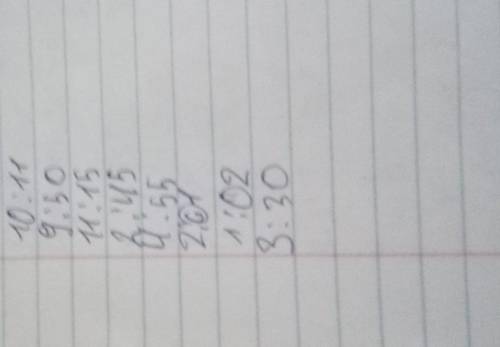 10:11
9:30
11:15
8:45
4:55
2:01
1:02
3:30